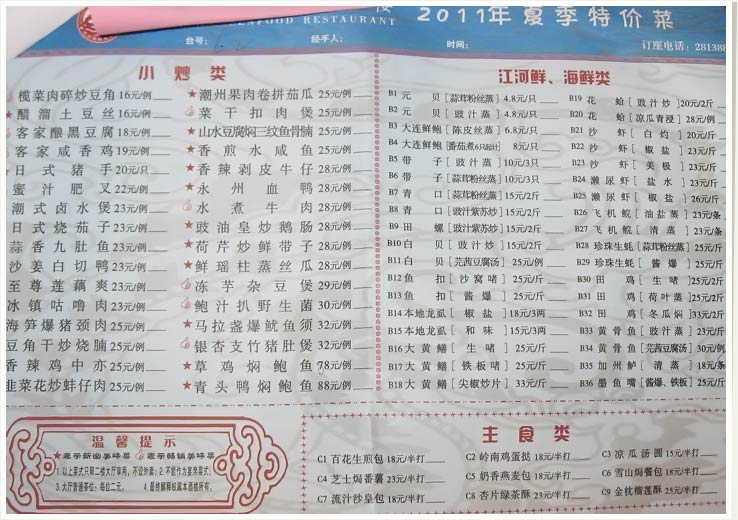 SEAFOOD RESTAURANT 2011年夏季特价菜
台号: 经手人: 时间: 订座电话: 28138
小炒类
榄菜肉碎炒豆角 16元/例
★醋溜土豆丝 16元/例
客家酿黑豆腐 18元/例
客家咸香鸡 19元/例
★日式猪手 20元/只
蜜汁肥叉 22元/例
潮式卤水煲 23元/例
日式烧茄子 23元/例
蒜香九肚鱼 23元/例
沙姜白切鸭 23元/例
至尊莲藕爽 23元/例
冰镇咕噜肉 23元/例
海笋爆猪颈肉 25元/例
豆角干炒烧腩 25元/例
香辣鸡中亦 25元/例
韭菜花炒蚌仔肉 25元/例
★潮州果肉卷拼茄瓜 25元/例
菜干扣肉煲 25元/例
★山水豆腐焖三纹鱼骨腩 25元/例
★香煎水咸鱼 25元/例
★香辣剥皮牛仔 28元/例
★永州血鸭 28元/例
水煮牛肉 28元/例
★豉油皇炒鹅肠 28元/例
★荷芹炒鲜带子 28元/例
★鲜瑶柱蒸丝瓜 28元/例
冻芋杂豆煲 29元/例
鲍汁扒野生菌 30元/例
★马拉盏爆鱿鱼须 32元/例
银杏支竹猪肚煲 32元/例
★草鸡焖鲍鱼 78元/例
★青头鸭焖鲍鱼 88元/例
江河鲜、海鲜类
B1 元贝[蒜茸粉丝蒸] 4.8元/只
B2 元贝[豉汁蒸] 4.8元/只
B3 大连鲜鲍[陈皮丝蒸] 6.8元/只
B4 大连鲜鲍[番茄煮6只起计] 8元/只
B5 带子[豉汁蒸] 10元/3只
B6 带子[蒜茸粉丝蒸] 10元/3只
B7 青口[蒜茸粉丝蒸] 15元/2斤
B8 青口[豉汁紫苏炒] 15元/2斤
B9 田螺[豉汁紫苏炒] 15元/2斤
B10 白贝[豉汁炒] 15元/2斤
B11 白贝[芫茜豆腐汤] 25元/例
B12 鱼扣[沙窝啫] 25元/斤
B13 鱼扣[酱爆] 25元/斤
B14 本地龙虱[椒盐] 18元/3两
B15 本地龙虱[和味] 15元/3两
B16 大黄鳝[生啫] 25元/斤
B17 大黄鳝[铁板啫] 25元/斤
B18 大黄鳝[尖椒炒片] 33元/斤
B19 花蛤[豉汁炒] 20元/2斤
B20 花蛤[凉瓜煮] 28元/例
B21 沙虾[白灼] 20元/斤
B22 沙虾[椒盐] 23元/斤
B23 沙虾[美极] 23元/斤
B24 濑尿虾[盐水] 23元/斤
B25 濑尿虾[椒盐] 26元/斤
B26 飞机鲩[油盐蒸] 23元/条
B27 飞机鲩[清蒸] 23元/条
B28 珍珠生蚝[蒜茸粉丝蒸] 25元/斤
B29 珍珠生蚝[酱爆] 25元/斤
B30 田鸡[生啫] 25元/斤
B31 田鸡[荷叶蒸] 25元/斤
B32 田鸡[冬瓜焖] 33元/斤
B33 黄骨鱼[豉汁蒸] 23元/斤
B34 黄骨鱼[芫茜豆腐汤] 30元/例
B35 加州鲈[清蒸] 18元/条
B36 墨鱼嘴[酱爆、铁板] 25元/斤
温馨提示
★表示新出美味菜 表示畅销美味菜
1.以上菜式只限二楼大厅享用,不设外卖; 2.不能作为宴席菜式;
3.大厅普通茶位:每位二元。 4.最终解释权属本酒楼所有。
主食类
C1 百花生煎包 18元/半打
C2 岭南鸡蛋挞 18元/半打
C3 凉瓜汤圆 15元/半打
C4 芝士焗番薯 23元/半打
C5 奶香燕麦包 18元/半打
C6 雪山焗餐包 18元/半打
C7 流汁沙皇包 18元/半打
C8 杏片绿茶酥 23元/半打
C9 金枕榴莲酥 25元/半打